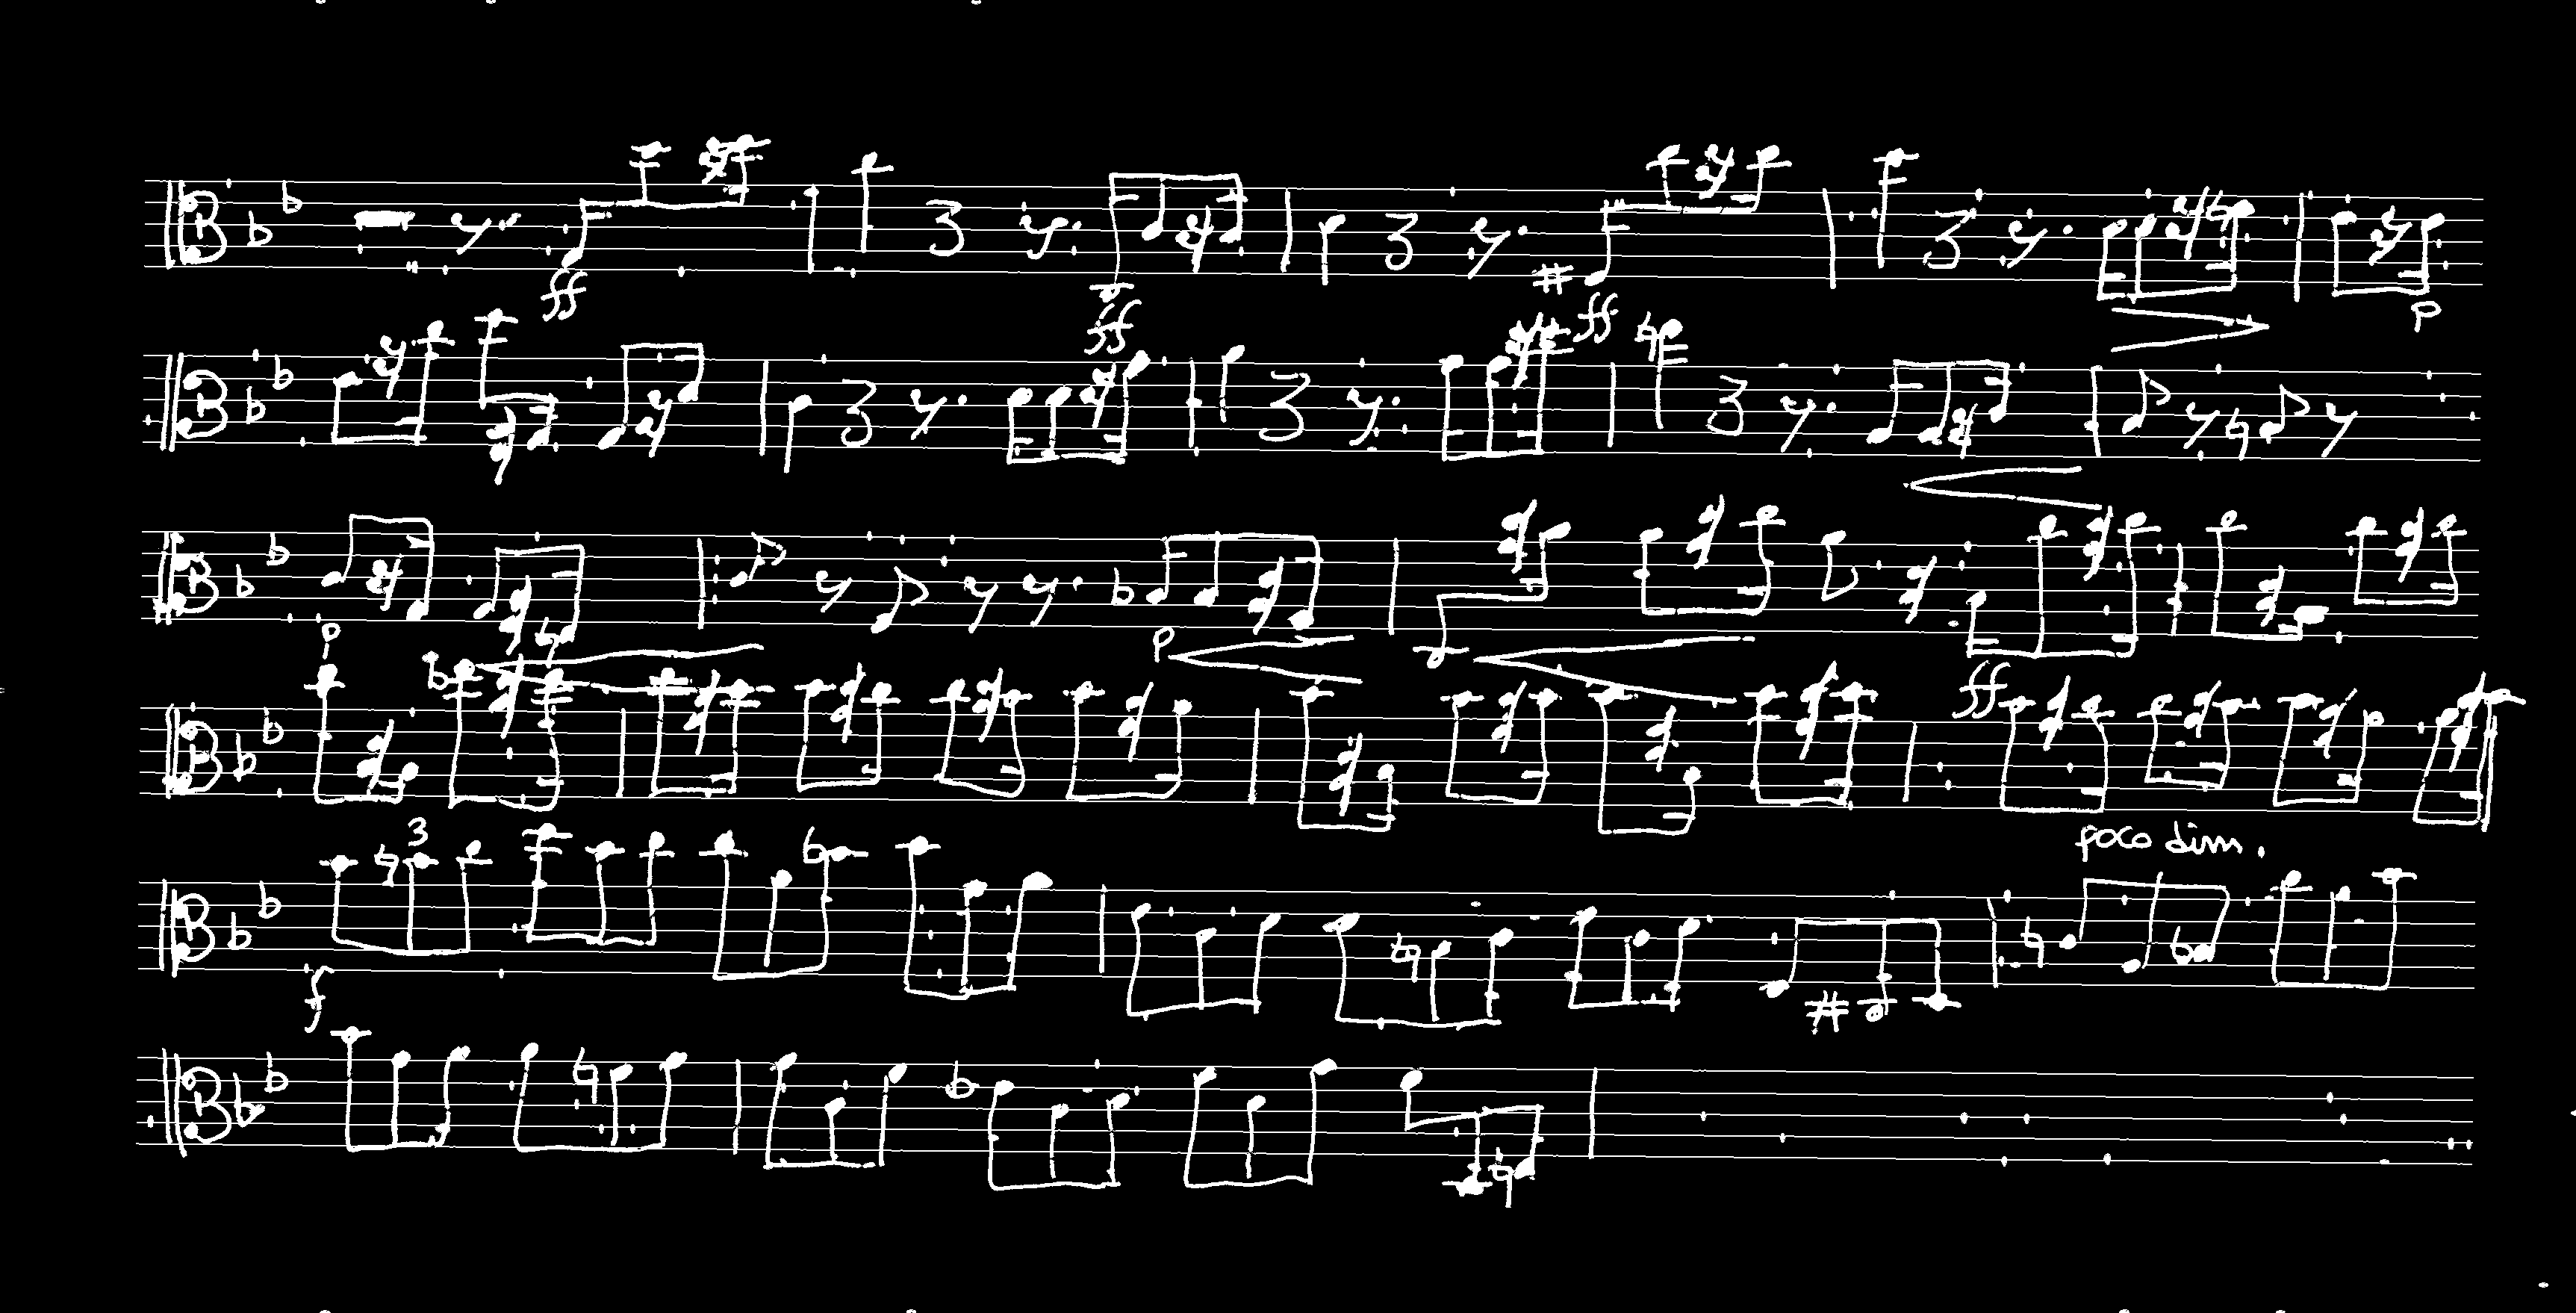 ff ff ff
p
p p
ff
3 poco dim.
f